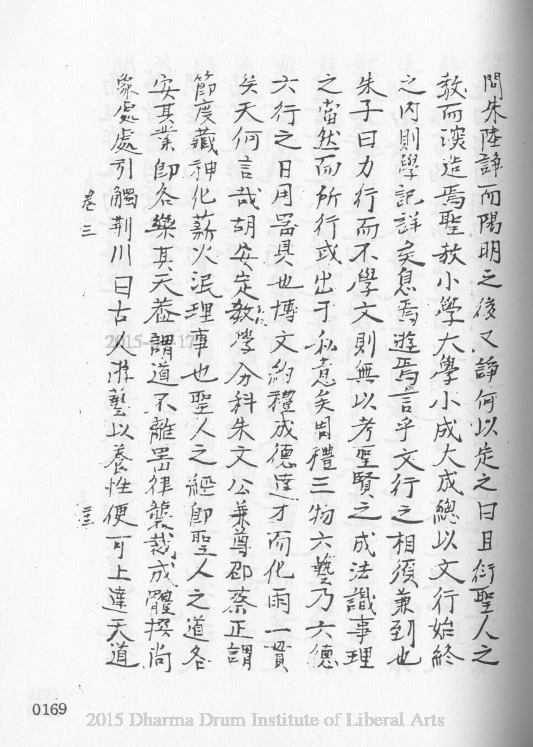 問朱陸諍而陽明之後又諍何以定之曰且衍聖人之
教而深造焉聖教小學大學小成大成總以文行始終
之內則學記詳矣息焉遊焉言乎文行之相須兼到也
朱子曰力行而不學文則無以考聖賢之成法識事理
之當然而所行或出于私意矣周禮三物六藝乃六德
六行之日用器具也博文約禮成德達才而化雨一貫
矣天何言哉胡安定教學分科朱文公兼尊邵蔡正謂
節度藏神化薪火泯理事也聖人之經即聖人之道各
安其業即各樂其天蓋謂道不離器律襲裁成體撰尚
象處處引觸荊川曰古人游藝以養性便可上達天道
卷三
三
0169
2015 Dharma Drum Institute of Liberal Arts